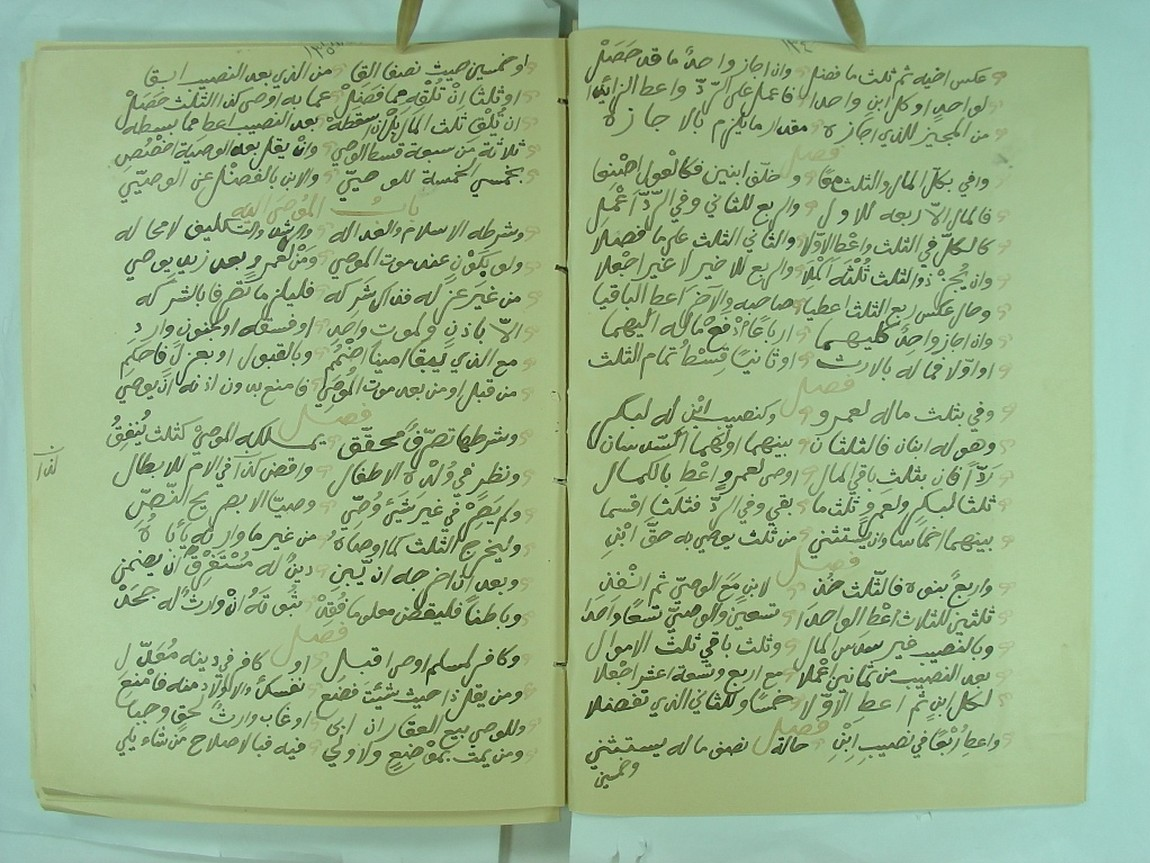 ١٣٤
عكس اخيه ثم ثلث ما فضل وان اجاز واحدًا ما قد حَصَلْ
لواحدٍ او كل ابنٍ واحدا فاعمل على الردّ واعط الزائدا
من المجيز للذي اجازه مقدار ما يلزم بالاجازه
فصل
وافي بكل المال والثلث معًا وخلّف ابنين فكالعول اصنعا
فالمال الاّ ربعه للاول والربع للثاني وفي الردّ اعْمَلِ
كالكل في الثلث واعْط الاوّلا والثاني الثلث على ما فصلا
وان يُجِزْ ذو الثلث ثُلْثَه اكملا والربع للاخير لا غير اجعلا
وحال عكس ربع الثلث اعطيا صاحبه والآخر اعط الباقيا
وان اجاز واحدٌ كليهما ارباعًا ادفع ماله اليهما
او اوّلا فما له بالارث او ثانيًا قِسْطُ تمام الثلث
فصل
وفي بثلث ماله لعمرو وكنصيب ابْنٍ له لبكر
وهو له ابنان فالثلثان بينهما ولهما السّدسان
رَدًّا فان بثلث باقي المال اوصى لعمرو اعْط بالكمال
ثلثا لبكر ولعمرو ثلث ما بقي وفي الردّ فثلثا اقسما
بينهما اخماسا وان يستثني من ثلث يوصي به حقّ ابْنِ
فصل
واربعً بنوه فالثّلث خُذن لابنٍ مَعَ الوصيّ ثم انْفذن
ثلثين للثلاث اعْط الواحدا تسعين والوصيّ تسعًا واحدا
وبالنصيب غير سدس المال وثلث باقي ثلث الاموال
بعد النصيب من ثمانين اعْملا مع اربع وتسعة اعشر اجْعلا
لكل ابنٍ ثم اعط الاوّلا خمسًا وللثاني الذي تفضلا
فصل
واعط رُبْعًا في نصيب ابْنِ حالة نصف ماله يستثني
وخمسين
١٣٥
او خمسين حيث نصفا القا من الذي بعد النصيب ابقا
او ثلثا انْ تُلْقِه مما فَضَلْ عما به اوصى كذا الثلث حَصَلْ
ان تُلْقِ ثلث المال بَلْ ان سقطه بعد النصيب اعط مما بسطه
ثلاثة من سبعة قسط الوصي وانْ يقل بعد الوصية اخْصُصِ
بخمسي الخمسة للوصيّ والابن بالفضل عن الوصيّ
باب الموصى اليه
وشرطه الاسلام والعداله والرشد والتكليف لا محاله
ولو يَكُوْن عند موت الموصي ومَنْ لعمرو بعد زيد يوصي
من غير عزله فذاك شركه فليلزما تصرفا بالشركه
الاّ باذنٍ ولموت واحِد او فسقه او لجنون وارد
مع الذي يبقا امينا اضْمُم وبالقبول او بعزلٍ فاحكم
من قبل او من بعد موت المُوصِي فامنع بدون اذنه انْ يوصي
فصل
وشرطها تصرّفٌ محقّق يملكه الموصيْ كثلث يُنْفِقُ
ونظر في وُلْدِه الاطفال واقض كذا في الام للابطال
ولم يَصِرْ في غير شيئ وُصِّي وصيّا الا بصريح النّصّ
وليخرج الثلث كما اوصاهُ من غير ما وارثُه يأباهُ
وبعد ان اخرجه ان يَبِن دينٌ له مُسْتَغْرِقٌ لن يضمن
وباطنًا فليقض معلوما فُقِدْ ثبوتهُ انْ وارثٌ له جحدْ
فصل
وكافر لمسلم اوصى اقبل او كافر في دينه مُعَدّل
ومن يقل ذا حيث شئتَ فضع نفسكَ والاولاد منه فامنع
وللوصي بيع العقار ان ابى او غاب وارثٌ لحقٍ وجبا
ومن يمت بموْضِعٍ ولا ولي فيه فبالاصلاح مَن شاء يلي